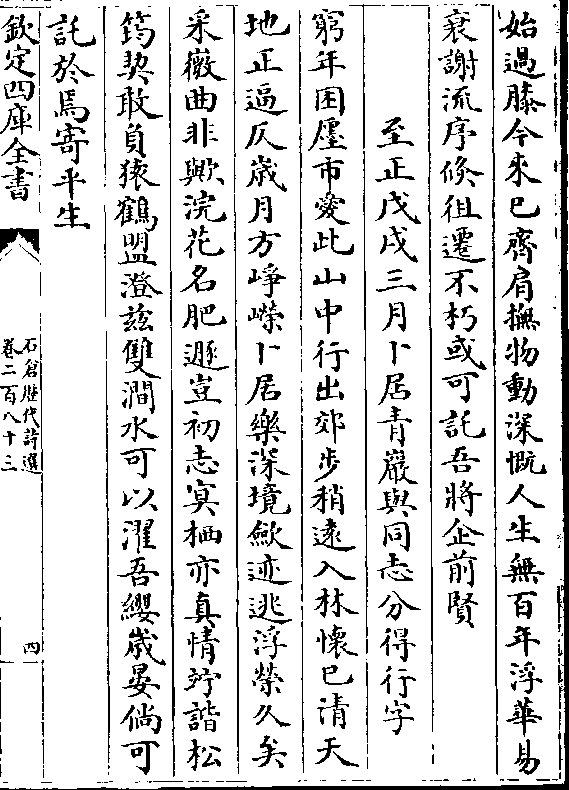 始過膝今來已齊肩撫物動深慨人生無百年浮華易
衰謝流序倐徂遷不朽或可託吾將企前賢
至正戊戌三月卜居青巖與同志分得行字
窮年困廛市愛此山中行出郊步稍遠入林懷已清天
地正逼仄歲月方崢嶸卜居樂深境斂迹逃浮榮久矣
采薇曲非歟浣花名肥遯豈初志冥栖亦真情竚諧松
筠契敢負猿鶴盟澄兹雙澗水可以濯吾纓歲晏倘可
託於焉寄平生
欽定四庫全書
石倉歷代詩選
卷二百八十三
四